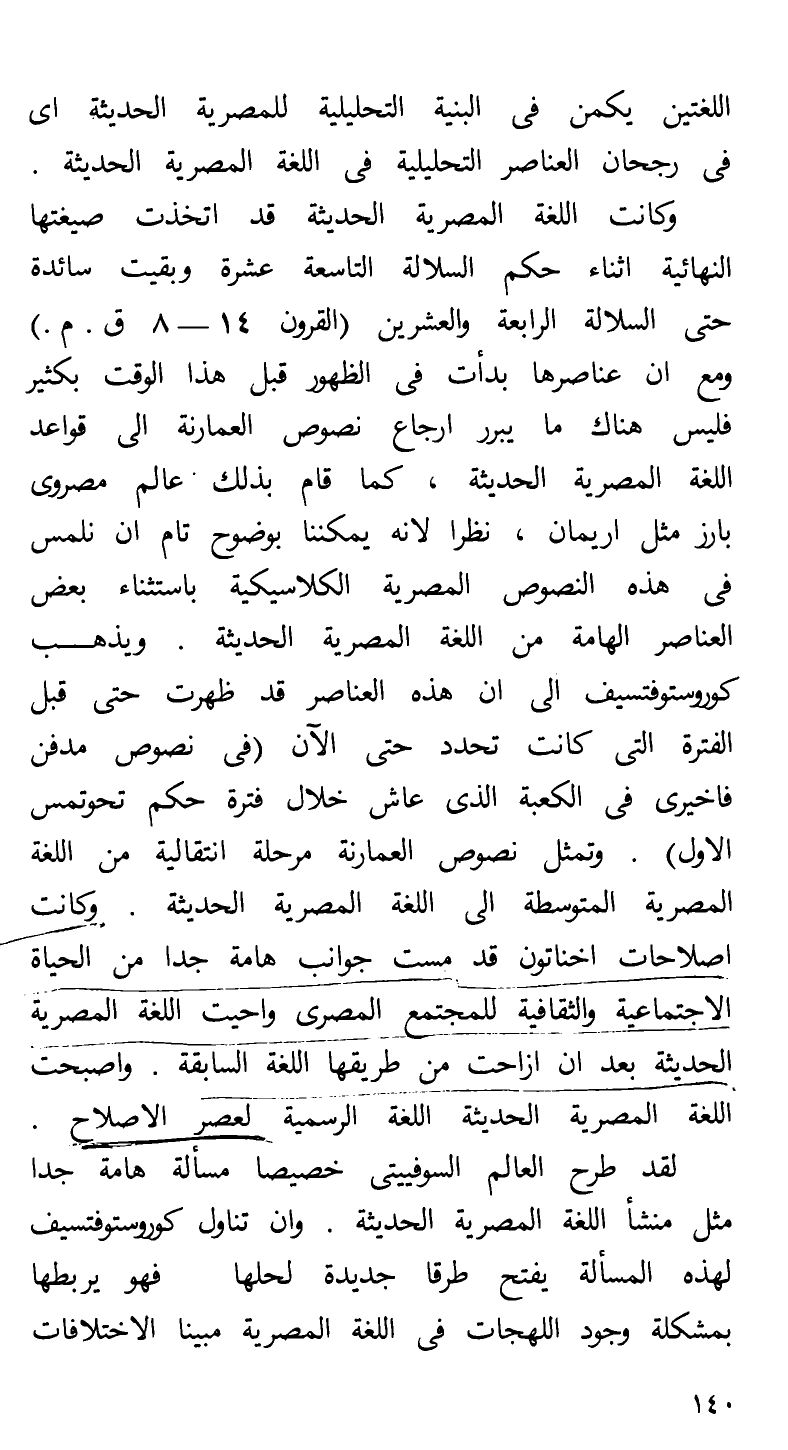 اللغتين يكمن فى البنية التحليلية للمصرية الحديثة اى
فى رجحان العناصر التحليلية فى اللغة المصرية الحديثة .
وكانت اللغة المصرية الحديثة قد اتخذت صيغتها
النهائية اثناء حكم السلالة التاسعة عشرة وبقيت سائدة
حتى السلالة الرابعة والعشرين (القرون ١٤ — ٨ ق . م .)
ومع ان عناصرها بدأت فى الظهور قبل هذا الوقت بكثير
فليس هناك ما يبرر ارجاع نصوص العمارنة الى قواعد
اللغة المصرية الحديثة ، كما قام بذلك عالم مصروى
بارز مثل اريمان ، نظرا لانه يمكننا بوضوح تام ان نلمس
فى هذه النصوص المصرية الكلاسيكية باستثناء بعض
العناصر الهامة من اللغة المصرية الحديثة . ويذهـــب
كوروستوفتسيف الى ان هذه العناصر قد ظهرت حتى قبل
الفترة التى كانت تحدد حتى الآن (فى نصوص مدفن
فاخيرى فى الكعبة الذى عاش خلال فترة حكم تحوتمس
الاول) . وتمثل نصوص العمارنة مرحلة انتقالية من اللغة
المصرية المتوسطة الى اللغة المصرية الحديثة . وكانت
اصلاحات اخناتون قد مست جوانب هامة جدا من الحياة
الاجتماعية والثقافية للمجتمع المصرى واحيت اللغة المصرية
الحديثة بعد ان ازاحت من طريقها اللغة السابقة . واصبحت
اللغة المصرية الحديثة اللغة الرسمية لعصر الاصلاح .
لقد طرح العالم السوفييتى خصيصا مسألة هامة جدا
مثل منشأ اللغة المصرية الحديثة . وان تناول كوروستوفتسيف
لهذه المسألة يفتح طرقا جديدة لحلها فهو يربطها
بمشكلة وجود اللهجات فى اللغة المصرية مبينا الاختلافات
١٤٠